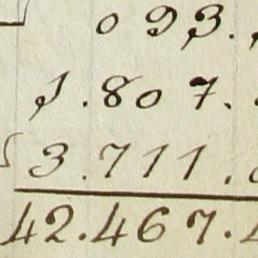 093.
1.807.
3.711.
42.467.